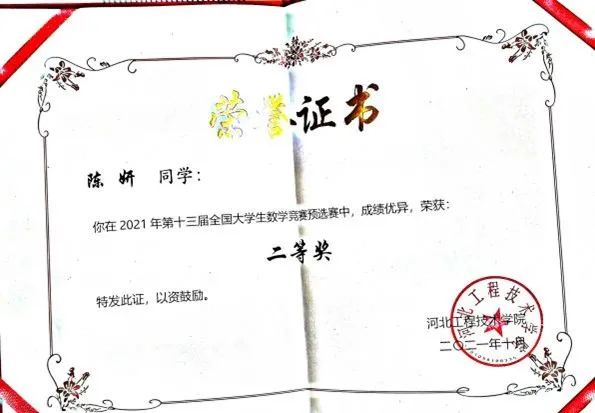 荣誉证书
陈妍 同学：
你在 2021 年第十三届全国大学生数学竞赛预选赛中，成绩优异，荣获：
二等奖
特发此证，以资鼓励。
河北工程技术学院
二〇二一年十月
河北工程技术学院